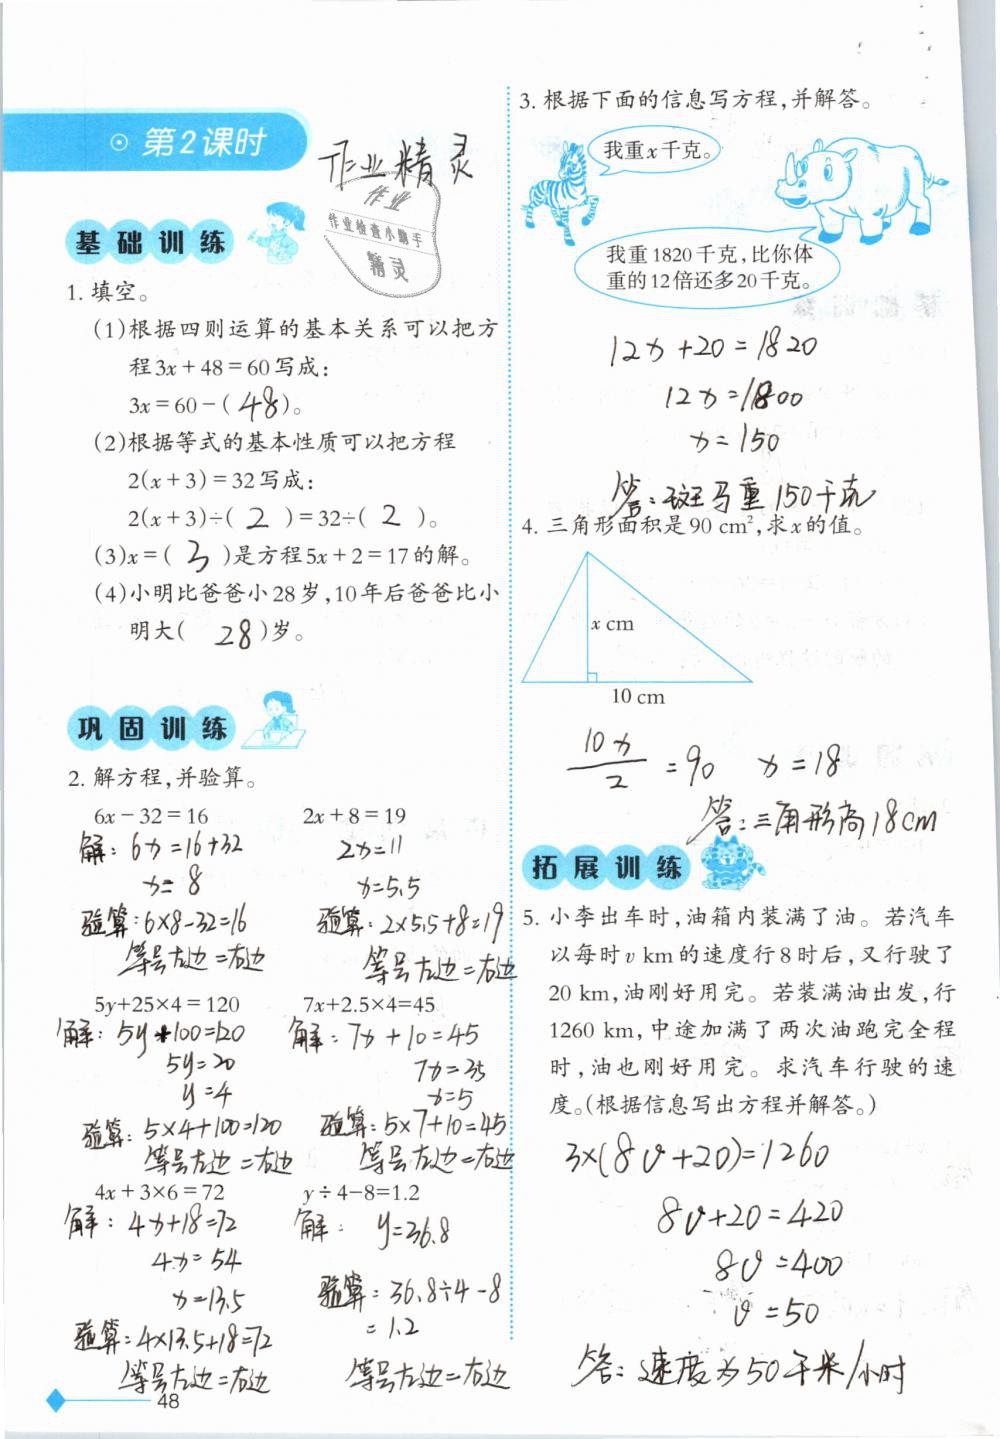 第2课时
作业精灵
作业
作业检查小助手
精灵
基础训练
1. 填空。
(1)根据四则运算的基本关系可以把方
程3x+48=60写成：
3x=60-( 48 )。
(2)根据等式的基本性质可以把方程
2(x+3)=32写成：
2(x+3)÷( 2 )=32÷( 2 )。
(3)x=( 3 )是方程5x+2=17的解。
(4)小明比爸爸小28岁,10年后爸爸比小
明大( 28 )岁。
巩固训练
2. 解方程,并验算。
6x-32=16 2x+8=19
解：6x=16+32 2x=11
x=8 x=5.5
验算：6×8-32=16 验算：2×5.5+8=19
等号左边=右边 等号左边=右边
5y+25×4=120 7x+2.5×4=45
解：5y+100=120 解：7x+10=45
5y=20 7x=35
y=4 x=5
验算：5×4+100=120 验算：5×7+10=45
等号左边=右边 等号左边=右边
4x+3×6=72 y÷4-8=1.2
解：4x+18=72 解：y=36.8
4x=54
x=13.5 验算：36.8÷4-8
验算：4×13.5+18=72 =1.2
等号左边=右边 等号左边=右边
48
3. 根据下面的信息写方程,并解答。
我重x千克。
我重1820千克,比你体
重的12倍还多20千克。
12x+20=1820
12x=1800
x=150
答：斑马重150千克
4. 三角形面积是90 cm²,求x的值。
x cm
10 cm
10x/2=90 x=18
答：三角形高18cm
拓展训练
5. 小李出车时,油箱内装满了油。若汽车
以每时v km的速度行8时后,又行驶了
20 km,油刚好用完。若装满油出发,行
1260 km,中途加满了两次油跑完全程
时,油也刚好用完。求汽车行驶的速
度。(根据信息写出方程并解答。)
3×(8v+20)=1260
8v+20=420
8v=400
v=50
答：速度为50千米/小时